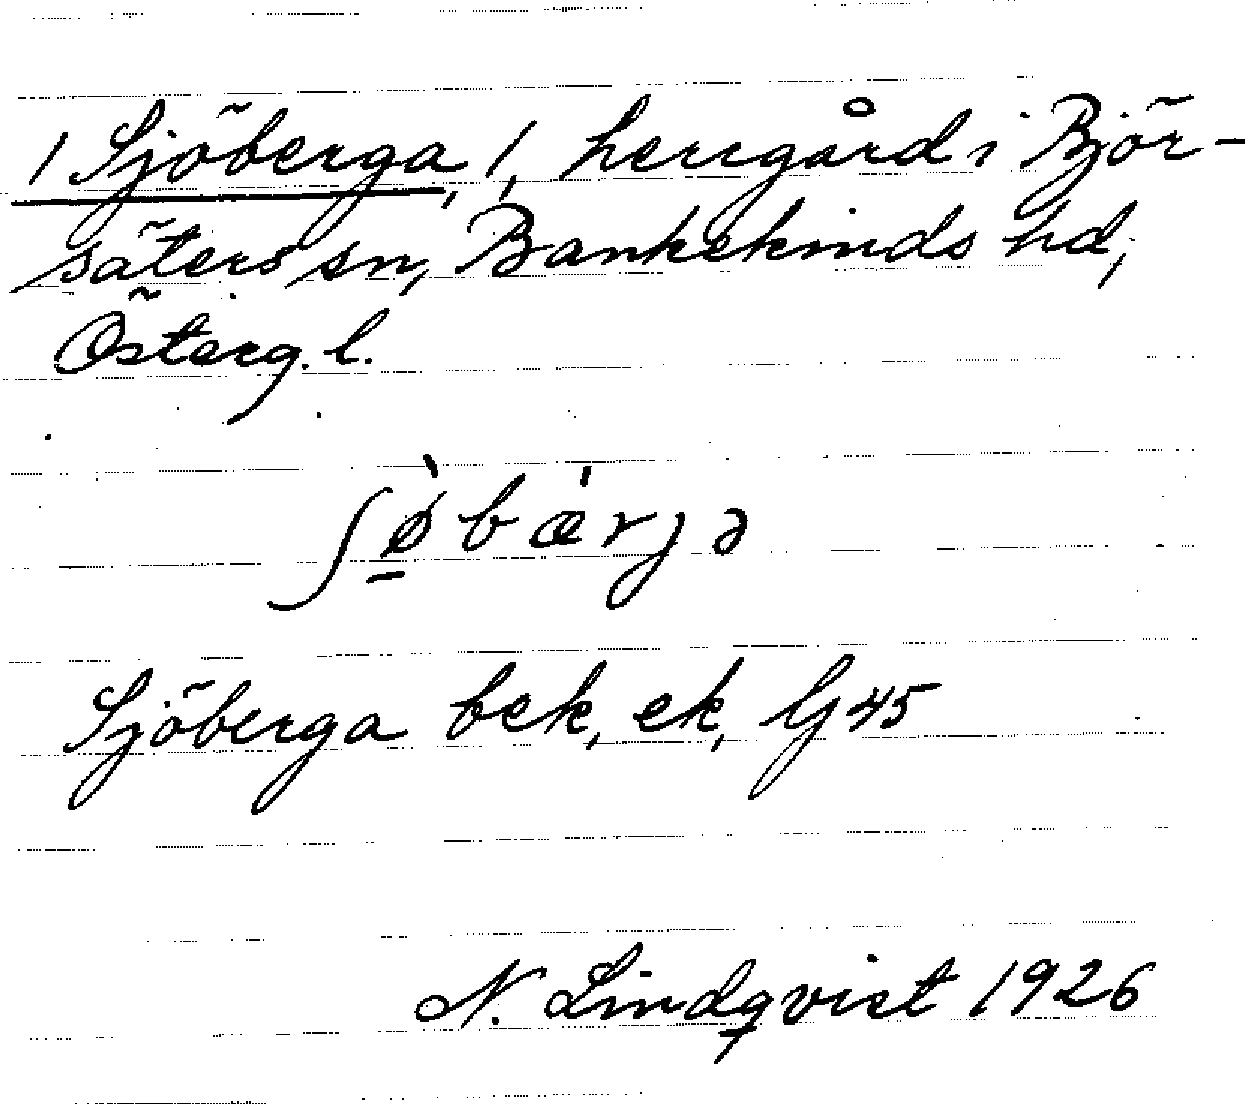 / Sjöberga, /, herrgård i Björ-
säters sn, Bankekinds hd,
Österg. l.
ʃø̱̀bǽrjə
Sjöberga bek, ek, Gj 45
N. Lindqvist 1926